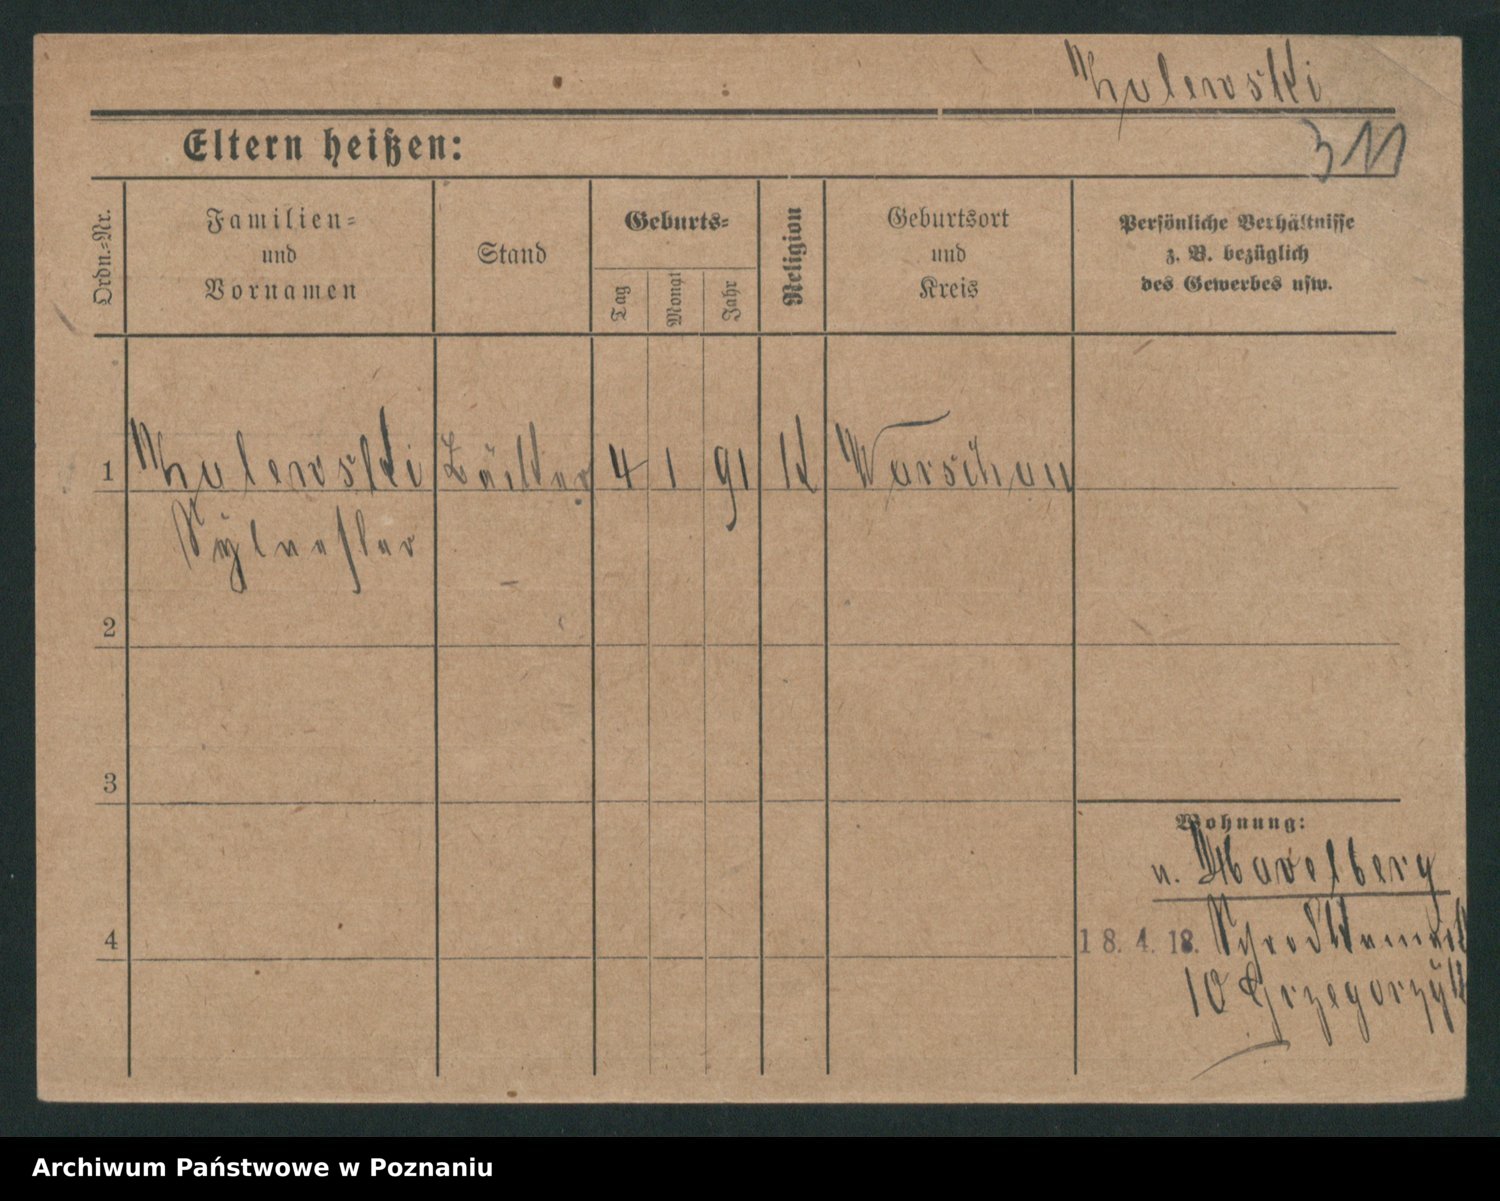 Zulewski
311
Eltern heißen:
Ordn.-Nr.
Familien-
und
Vornamen
Stand
Geburts-
Tag
Monat
Jahr
Religion
Geburtsort
und
Kreis
Persönliche Verhältnisse
z. B. bezüglich
des Gewerbes usw.
1 Zulewski Bäcker 4 1 91 K Warschau
Sylvester
2
3
Wohnung:
n. Havelberg
4
18. 4. 18. Schrodkamarkt
10 Grzegorzyk
Archiwum Państwowe w Poznaniu